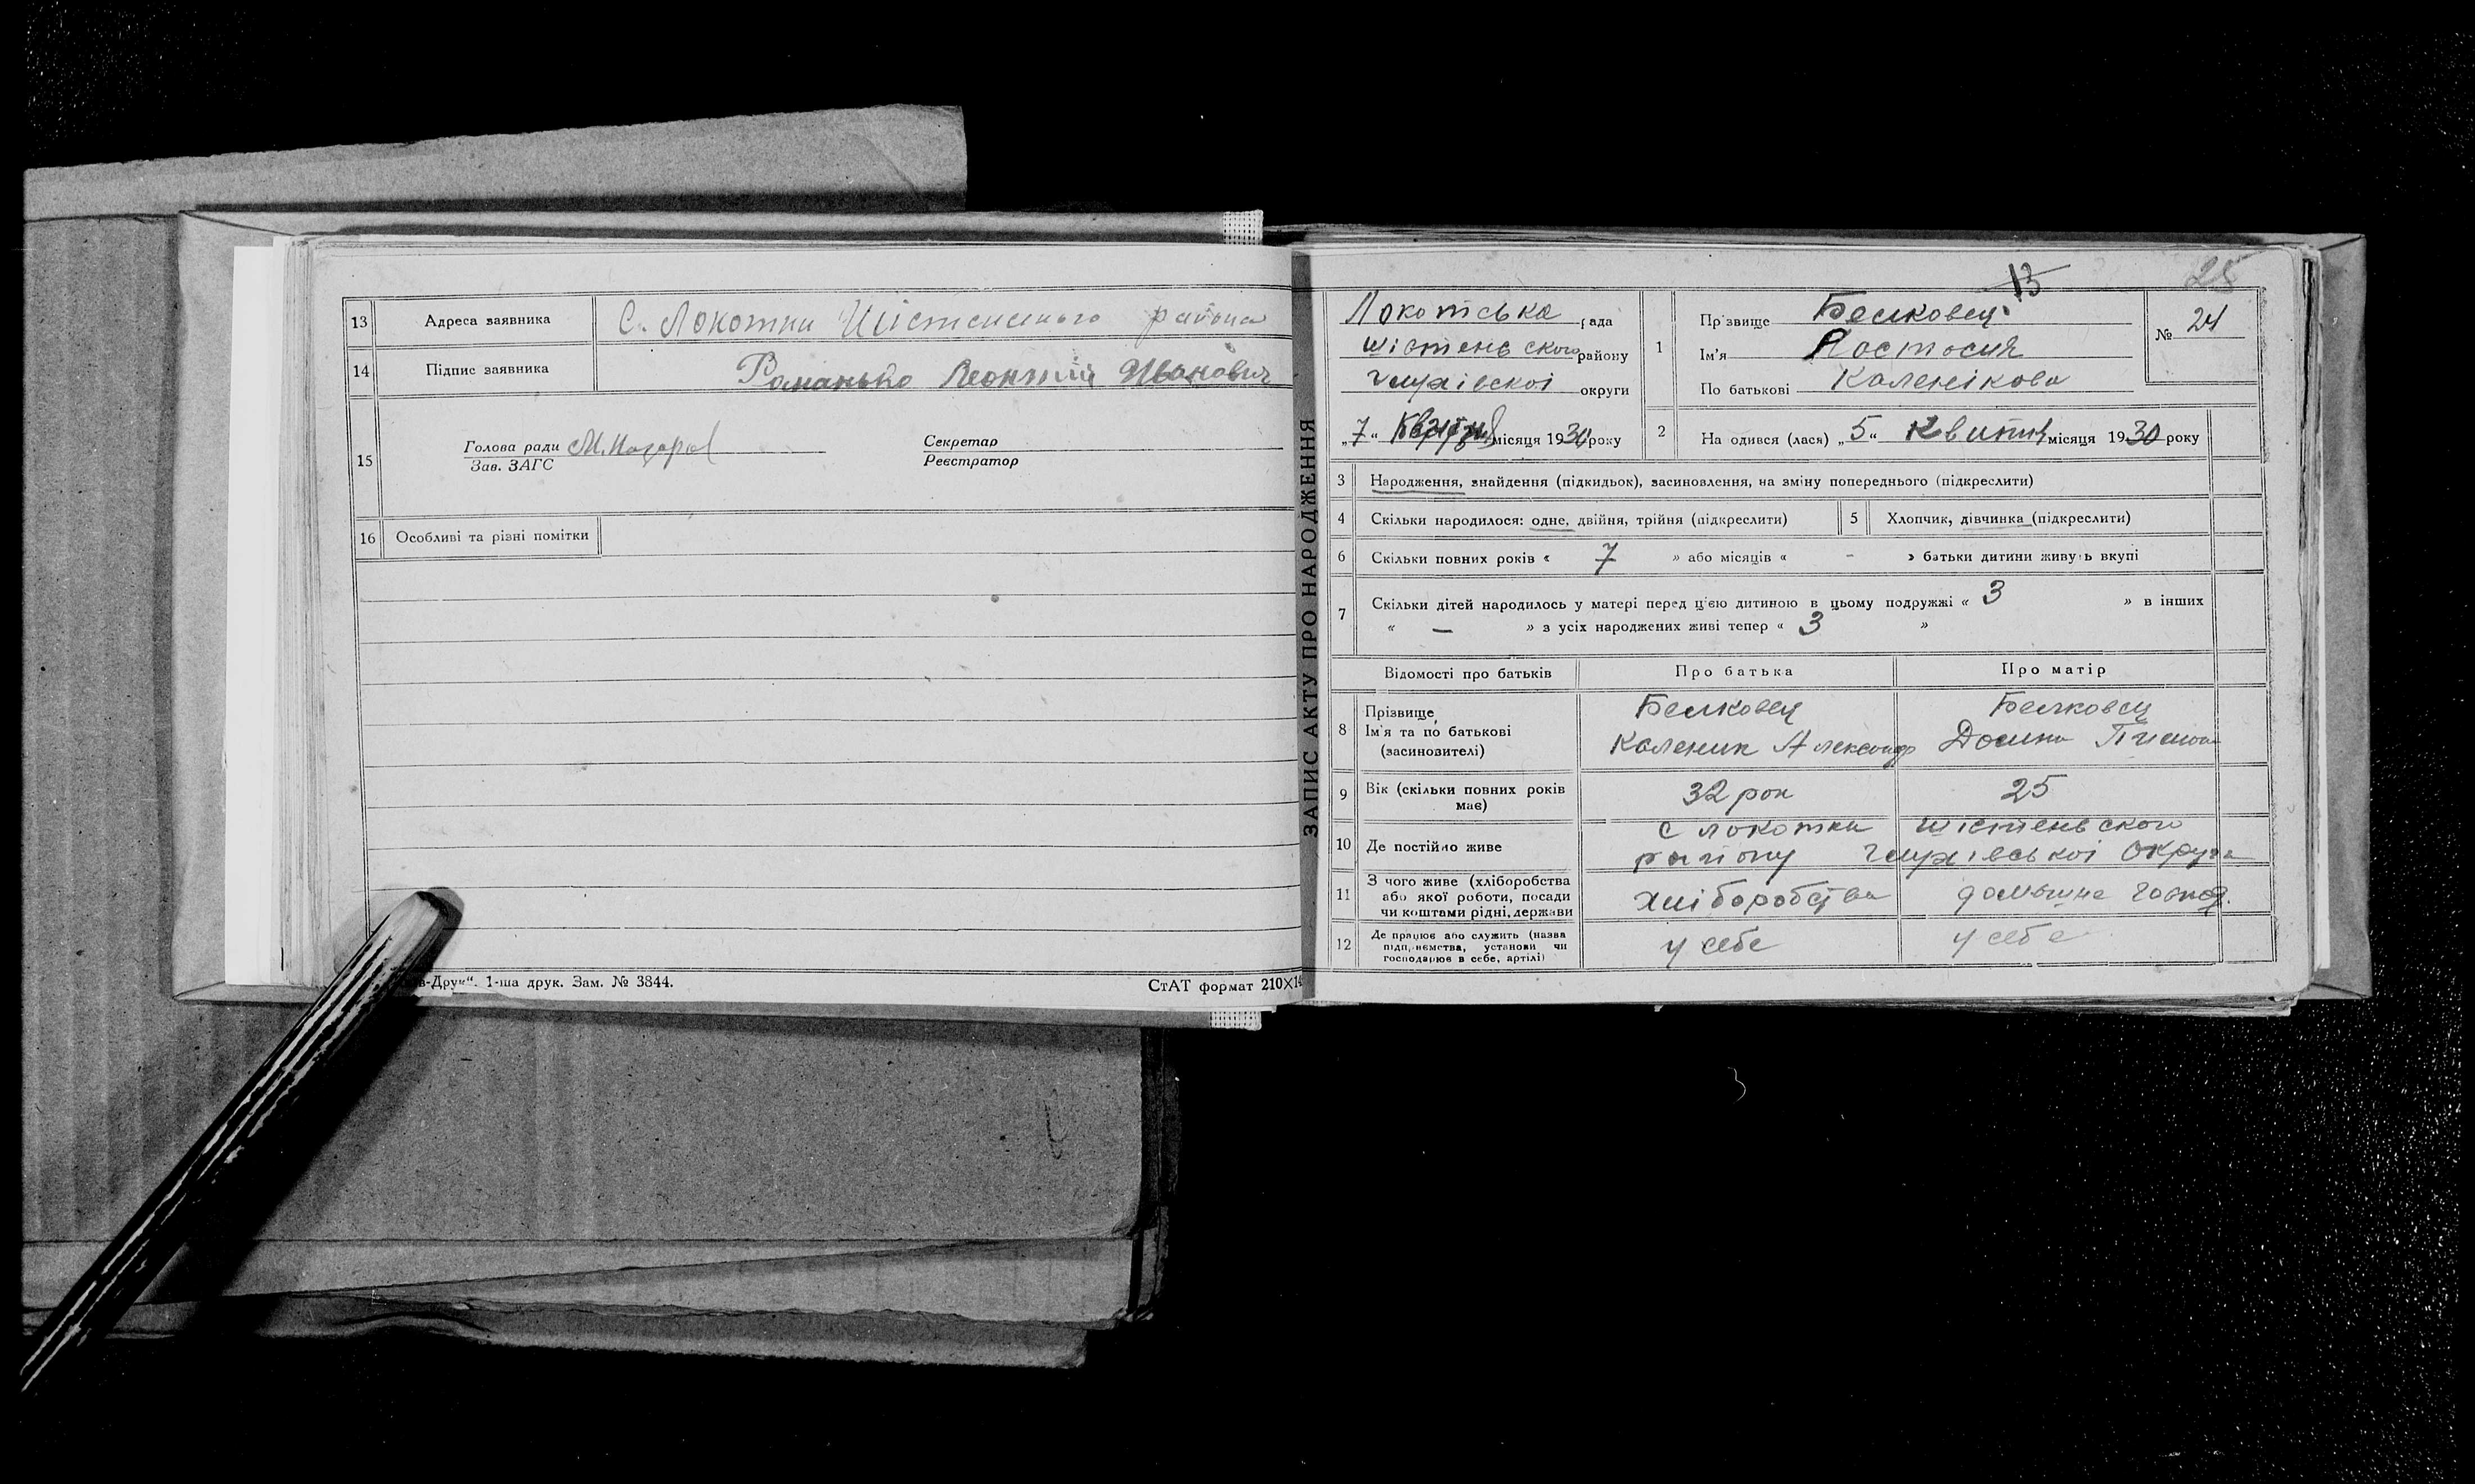 13 Адреса заявника С. Локотки Шістенського района
14 Підпис заявника Романько Леонтій Иванович
15 Голова ради М. Назаров Секретар
Зав. ЗАГС Реєстратор
16 Особливі та різні помітки
-Друк“. 1-ша друк. Зам. № 3844. СтАТ формат 210×14
ЗАПИС АКТУ ПРО НАРОДЖЕННЯ
13 25
Локотська рада
шістенського району
округи
„7“ місяця 1930 року
1 Прізвище Белковец
Ім'я
По батькові Каленікова
№ 24
2 Народився (лася) „5“ Квитня місяця 1930 року
3 Народження, знайдення (підкидьок), засиновлення, на зміну попереднього (підкреслити)
4 Скільки народилося: одне, двійня, трійня (підкреслити) 5 Хлопчик, дівчинка (підкреслити)
6 Скільки повних років « 7 » або місяців « - » батьки дитини живуть вкупі
7 Скільки дітей народилось у матері перед цією дитиною в цьому подружжі « 3 » в інших
« — » з усіх народжених живі тепер « 3 »
Відомості про батьків Про батька Про матір
8 Прізвище, Белковец Белковец
Ім'я та по батькові Каленик Александр
(засиновителі)
9 Вік (скільки повних років має) 32 рок 25
10 Де постійно живе с локотки шістенського
району округи
11 З чого живе (хліборобства хліборобства домашне господ.
або якої роботи, посади
чи коштами рідні, держави
12 Де працює або служить (назва у себе у себе
підприємства, установи чи
господарює в себе, артілі)